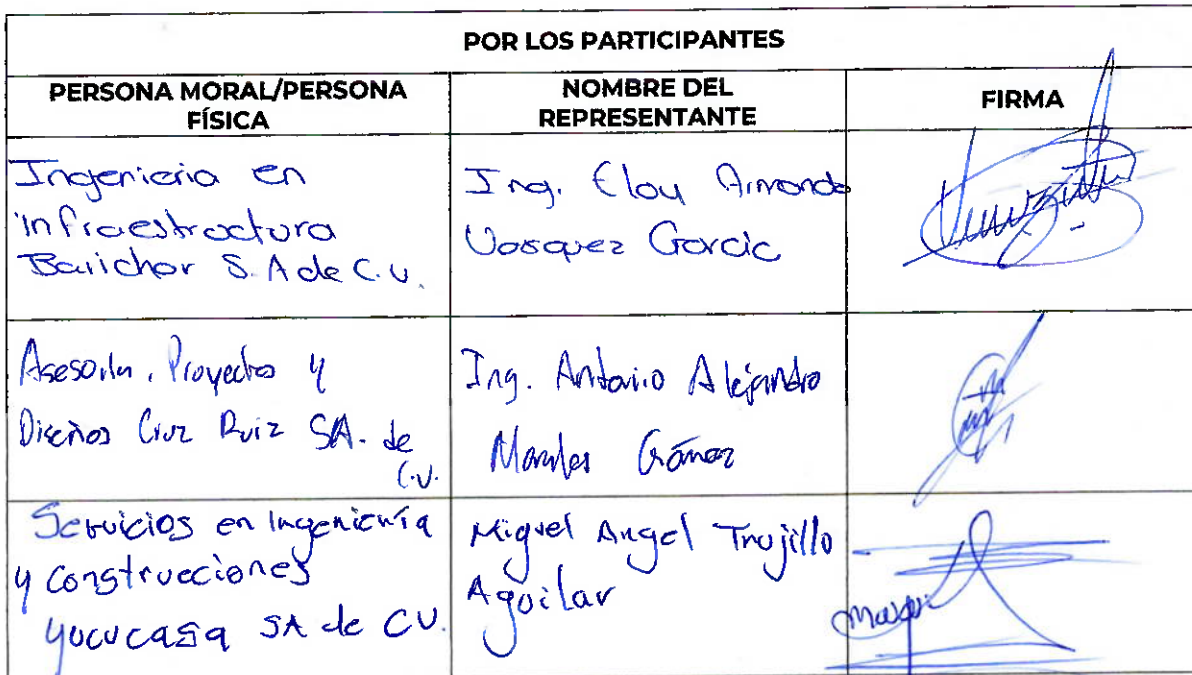 POR LOS PARTICIPANTES
PERSONA MORAL/PERSONA
FÍSICA
NOMBRE DEL
REPRESENTANTE
FIRMA
Ingenieria en
infraestructura
Barichar S.A de C.V.
Ing. Eloy Armando
Vasquez Garcia
Asesoria, Proyectos y
Diseños Cruz Ruiz SA. de
C.V.
Ing. Antonio Alejandro
Morales Gómez
Servicios en Ingeniería
y Construcciones
Yucucasa SA de CV.
Miguel Angel Trujillo
Aguilar